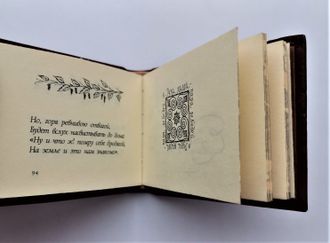 Но, горя ревнивою отвагой,
Будет вслух насвистывать до дома:
«Ну и что ж! помру себе бродягой,
На земле и это нам знакомо».
94